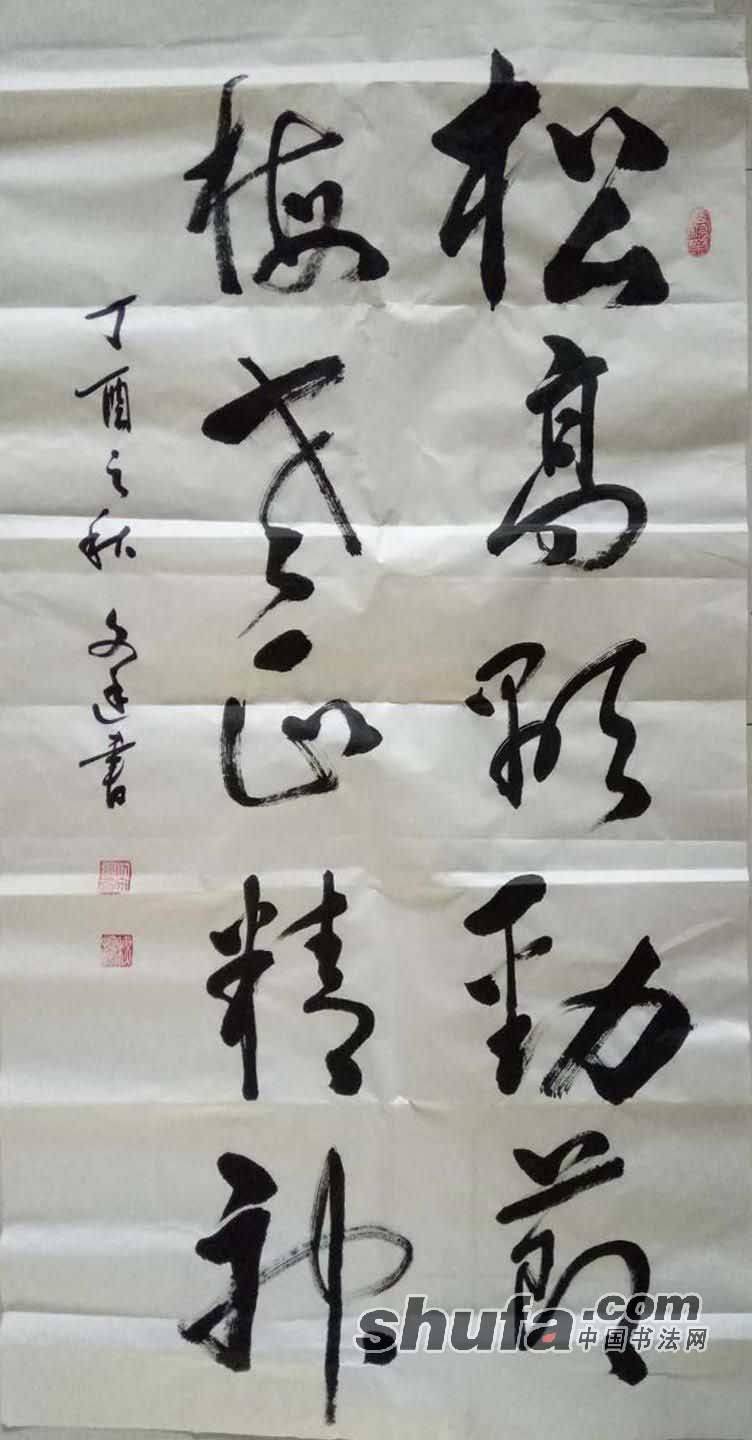 松高顯勁節
梅老正精神
丁酉之秋 文 書
shufa.com
中国书法网